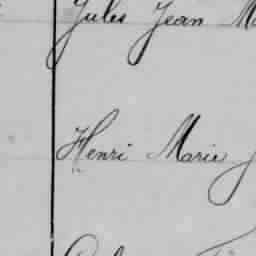 Jules Jean
Henri Marie